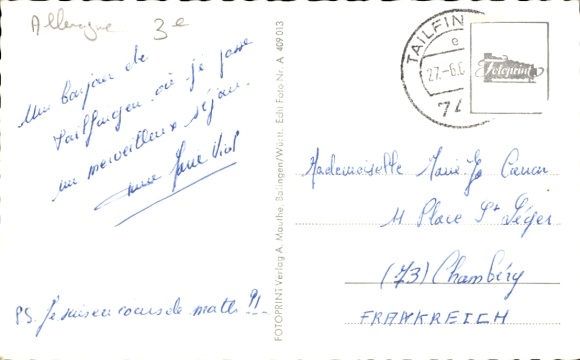 Allemagne 3e
Un bonjour de
Tailfingen où je passe
un merveilleux séjour.
Anne
PS. Je suis en cours de math !!
FOTOPRINT Verlag A. Mauthe, Balingen/Württ. Echt Foto Nr. A 409013
TAILFIN
e
27.-6.6
74
Fotoprint
Mademoiselle Marie
11 Place St Léger
(73) Chambéry
FRANKREICH